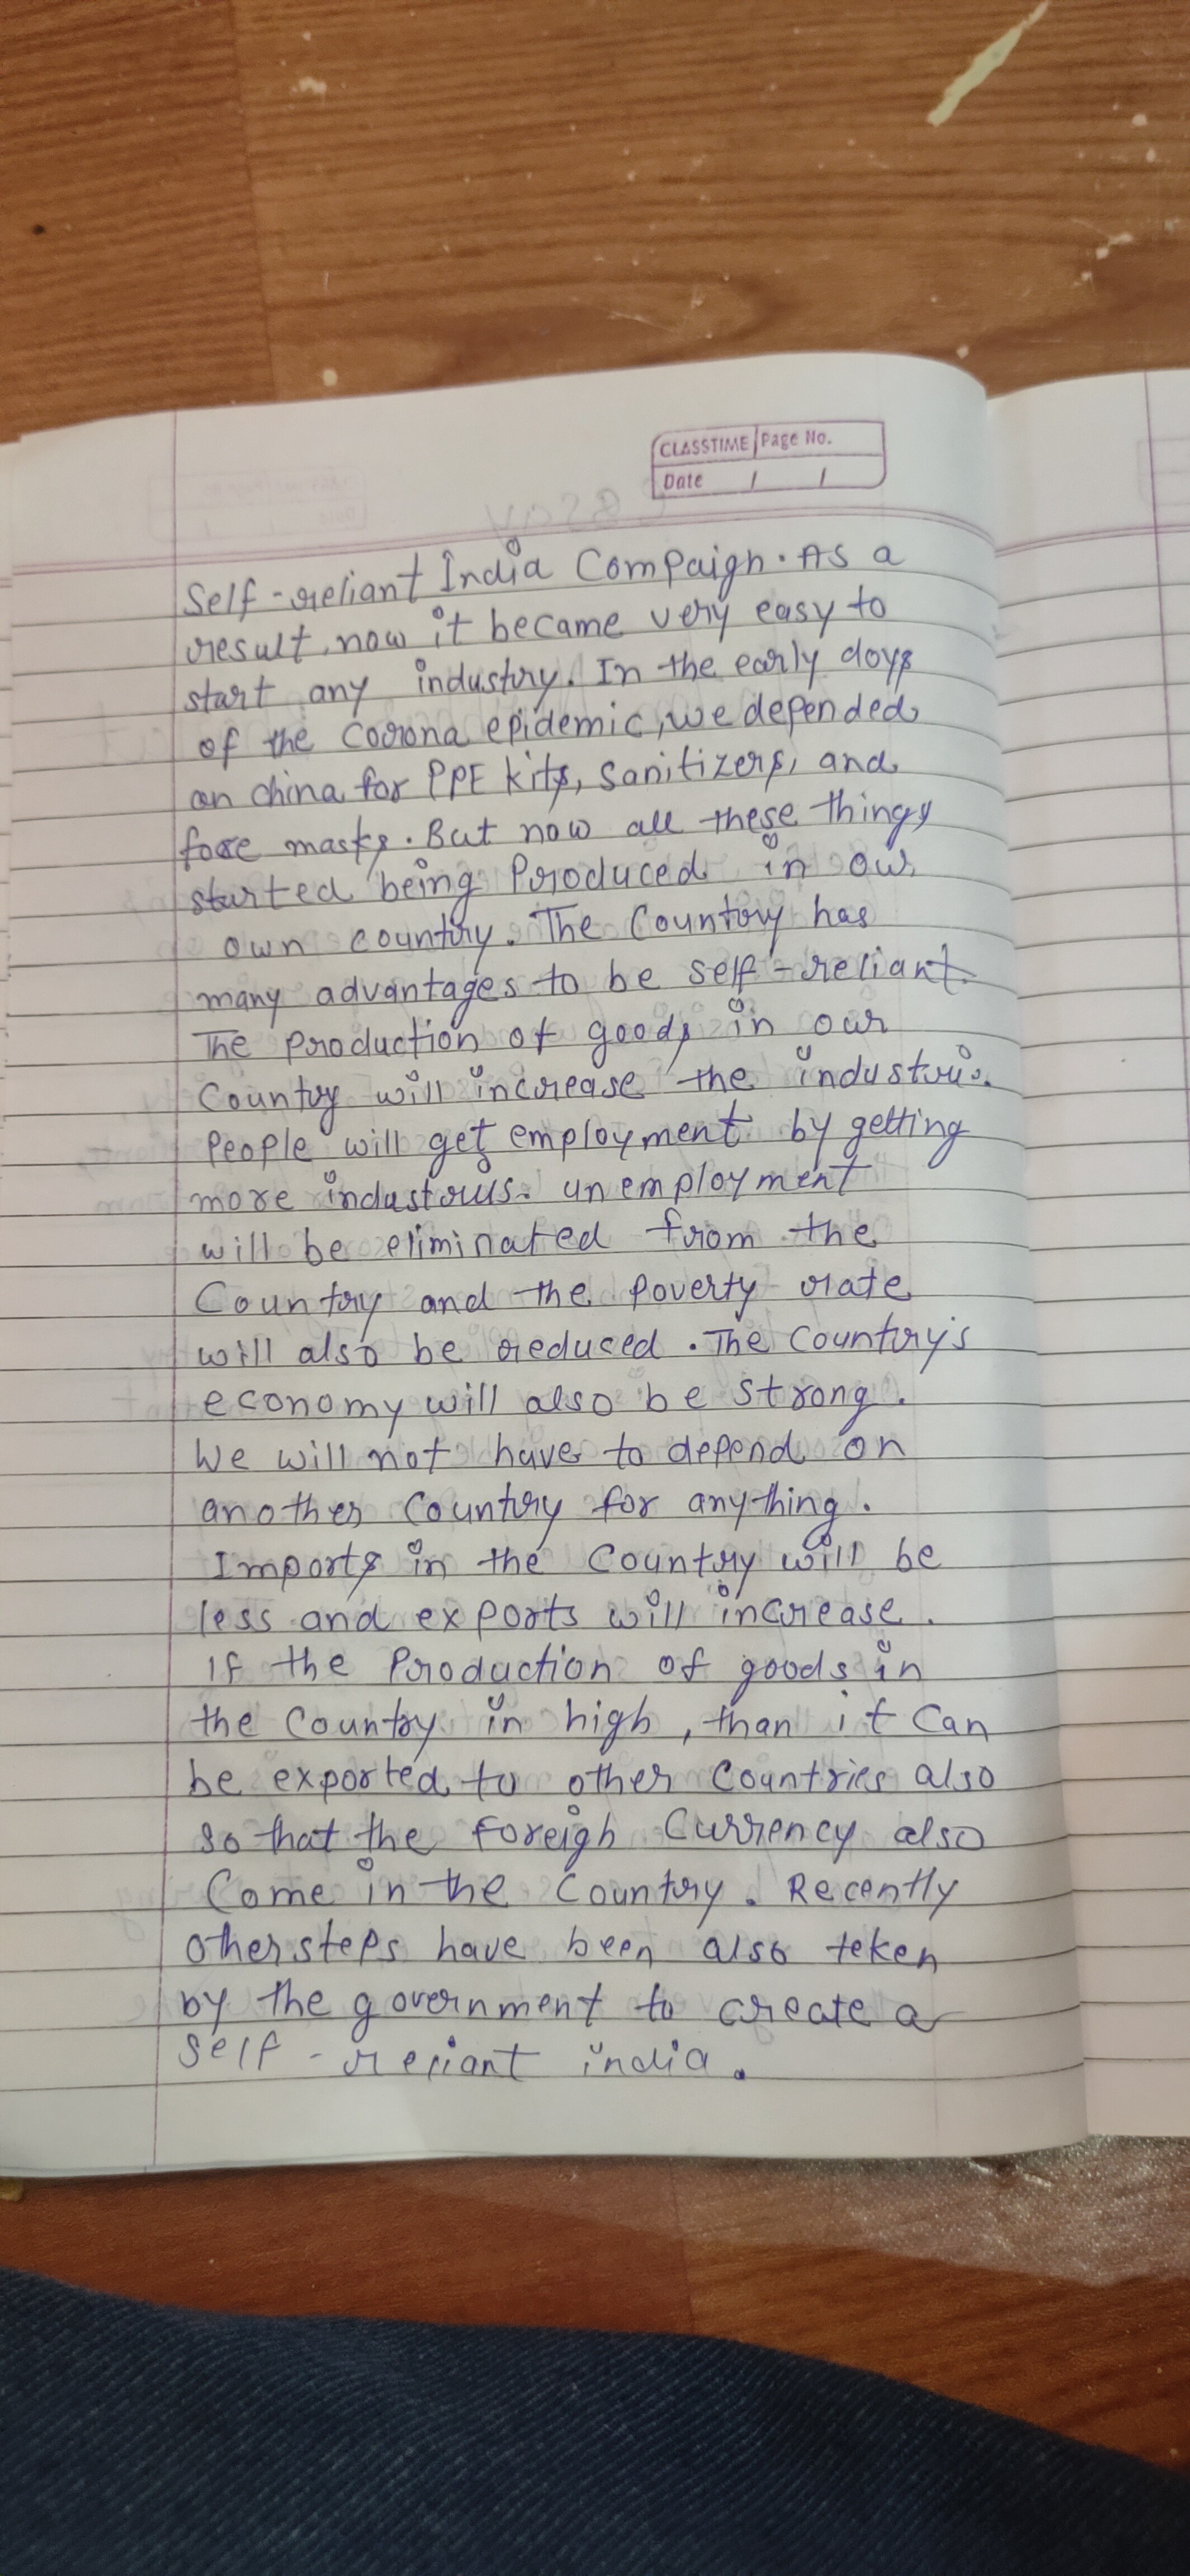 CLASSTIME Page No.
Date / /
Self-reliant India Compaign. As a
result, now it became very easy to
start any industry. In the early days
of the Corona epidemic, we depended
on china for PPE kits, Sanitizers, and
face masks. But now all these things
started being Produced in our
own country. The Country has
many advantages to be self-reliant.
The production of goods in our
Country will increase the industris.
People will get employment by getting
more industries. unemployment
will be eliminated from the
Country and the Poverty rate
will also be reduced. The Country's
economy will also be strong.
We will not have to depend on
another Country for anything.
Imports in the Country will be
less and exports will increase.
If the Production of goods in
the Country in high, than it Can
be exported to other Countries also
so that the foreigh Currency also
Come in the Country. Recently
other steps have been also teken
by the government to create a
self-reliant india.